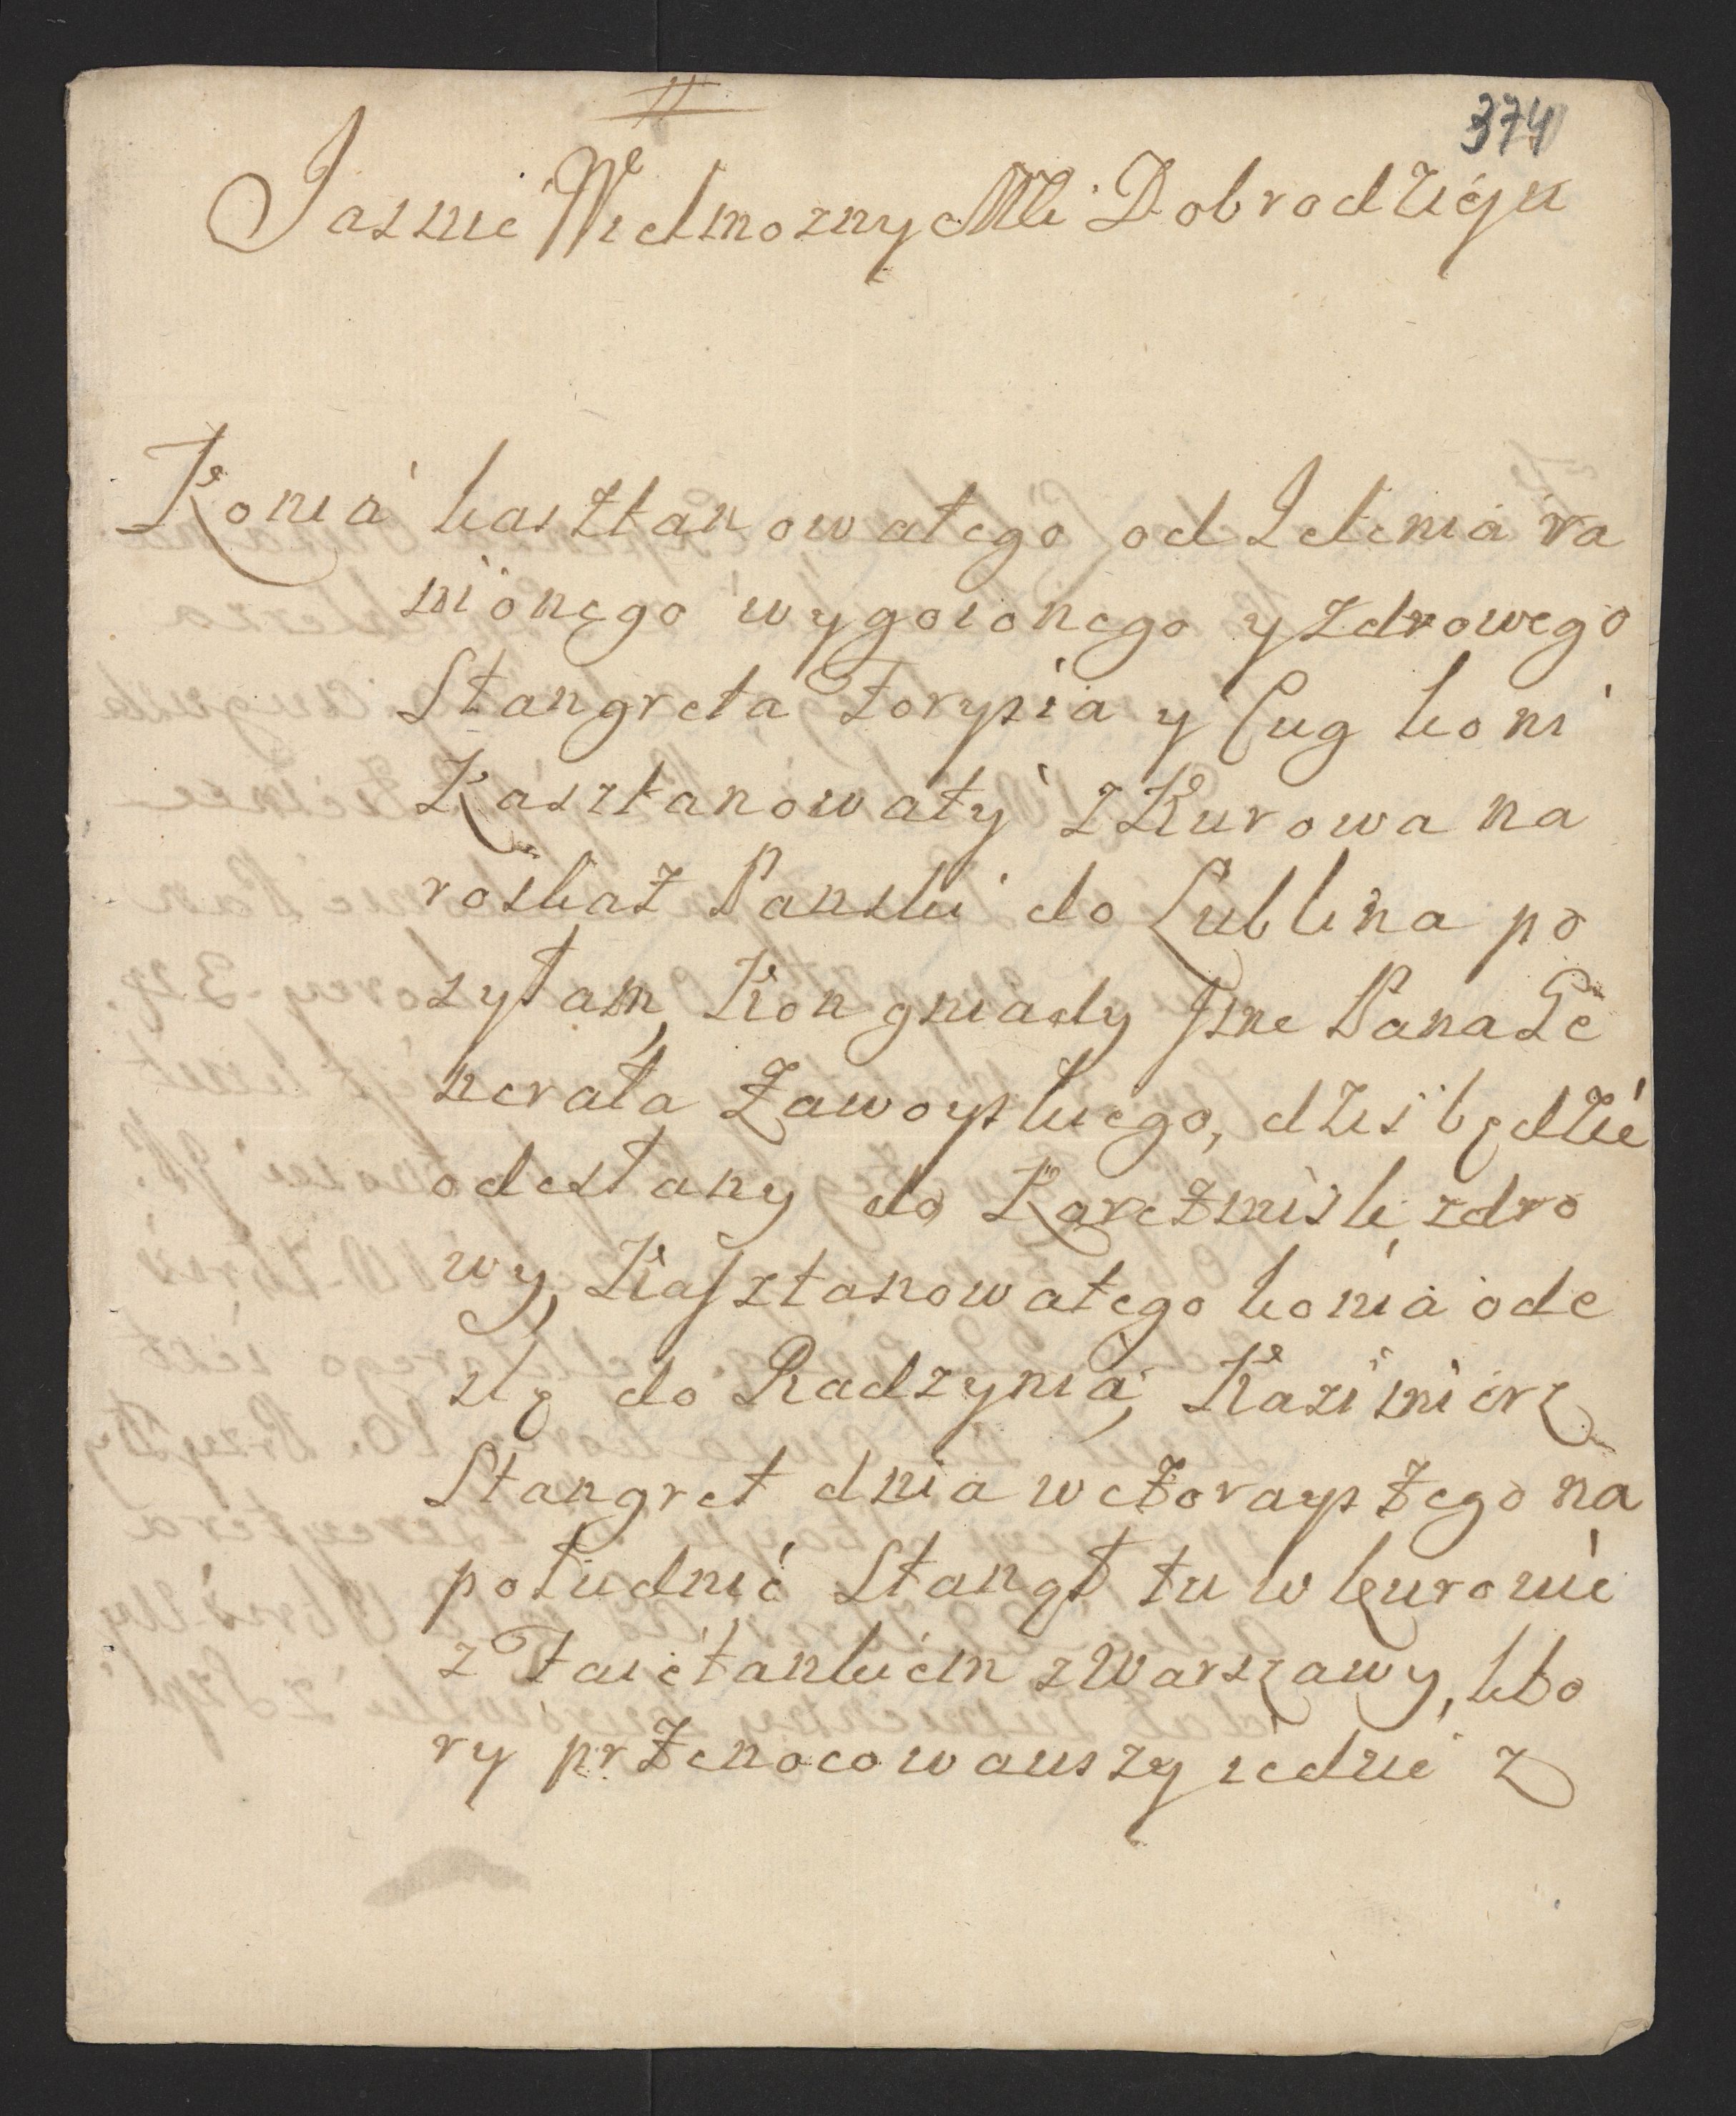 374
Jasnie Wielmozny Mci Dobrodzieju
Konia kasztanowatego od Jelenia ra
nionego wygoionego y zdrowego
Stangreta Forysia y Cug koni
Kasztanowaty z Kurowa na
roskaz Panski do Lublina po
syłam, Kon gniady Jme Pana Ge
nerała Zawoyskiego, dzis będzie
odesłany do Karczmisk zdro
wy, Kasztanowatego konia ode
slę do Radzynia, Kazimierz
Stangret dnia wczorayszego na
południe Stanął tu w Kurowie
z Faietankiem z Warszawy, kto
ry przenocowauszy iedzie z